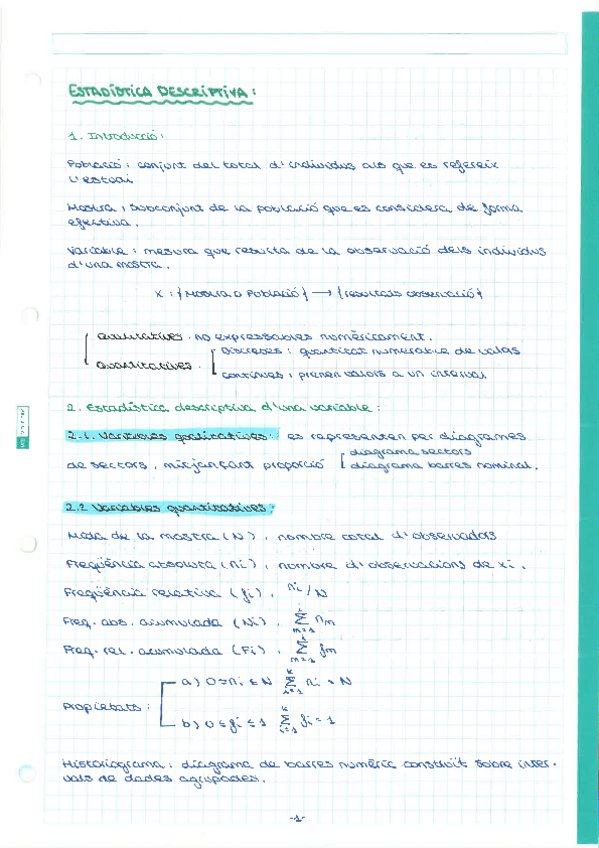 ESTADÍSTICA DESCRIPTIVA:
1. Introducció:
Població: conjunt del total d'individus als que es refereix
l'estudi
Mostra: subconjunt de la població que es considera de forma
efectiva.
Variable: mesura que resulta de la observació dels individus
d'una mostra.
X: {Mostra o Població} → {resultats observació}
qualitatives: no expressables numèricament.
quantitatives:
Discretes: quantitat numerable de valors
contínues: prenen valors a un interval
2. Estadística descriptiva d'una variable:
2.1. Variables qualitatives: es representen per diagrames
de sectors, mitjançant proporció
diagrama sectors
diagrama barres nominal.
2.2 Variables quantitatives:
de la mostra (N), nombre total d'observadors
Freqüència absoluta (ni), nombre d'observacions de xi.
Freqüència relativa (fi), ni/N
Freq. abs. acumulada (Ni), Σ nm
Freq. rel. acumulada (Fi), Σ fm
Propietats:
a) 0≤ni≤N Σ ni = N
b) 0≤fi≤1 Σ fi = 1
Historiograma: diagrama de barres numèric construït sobre inter-
vals de dades agrupades.
-1-